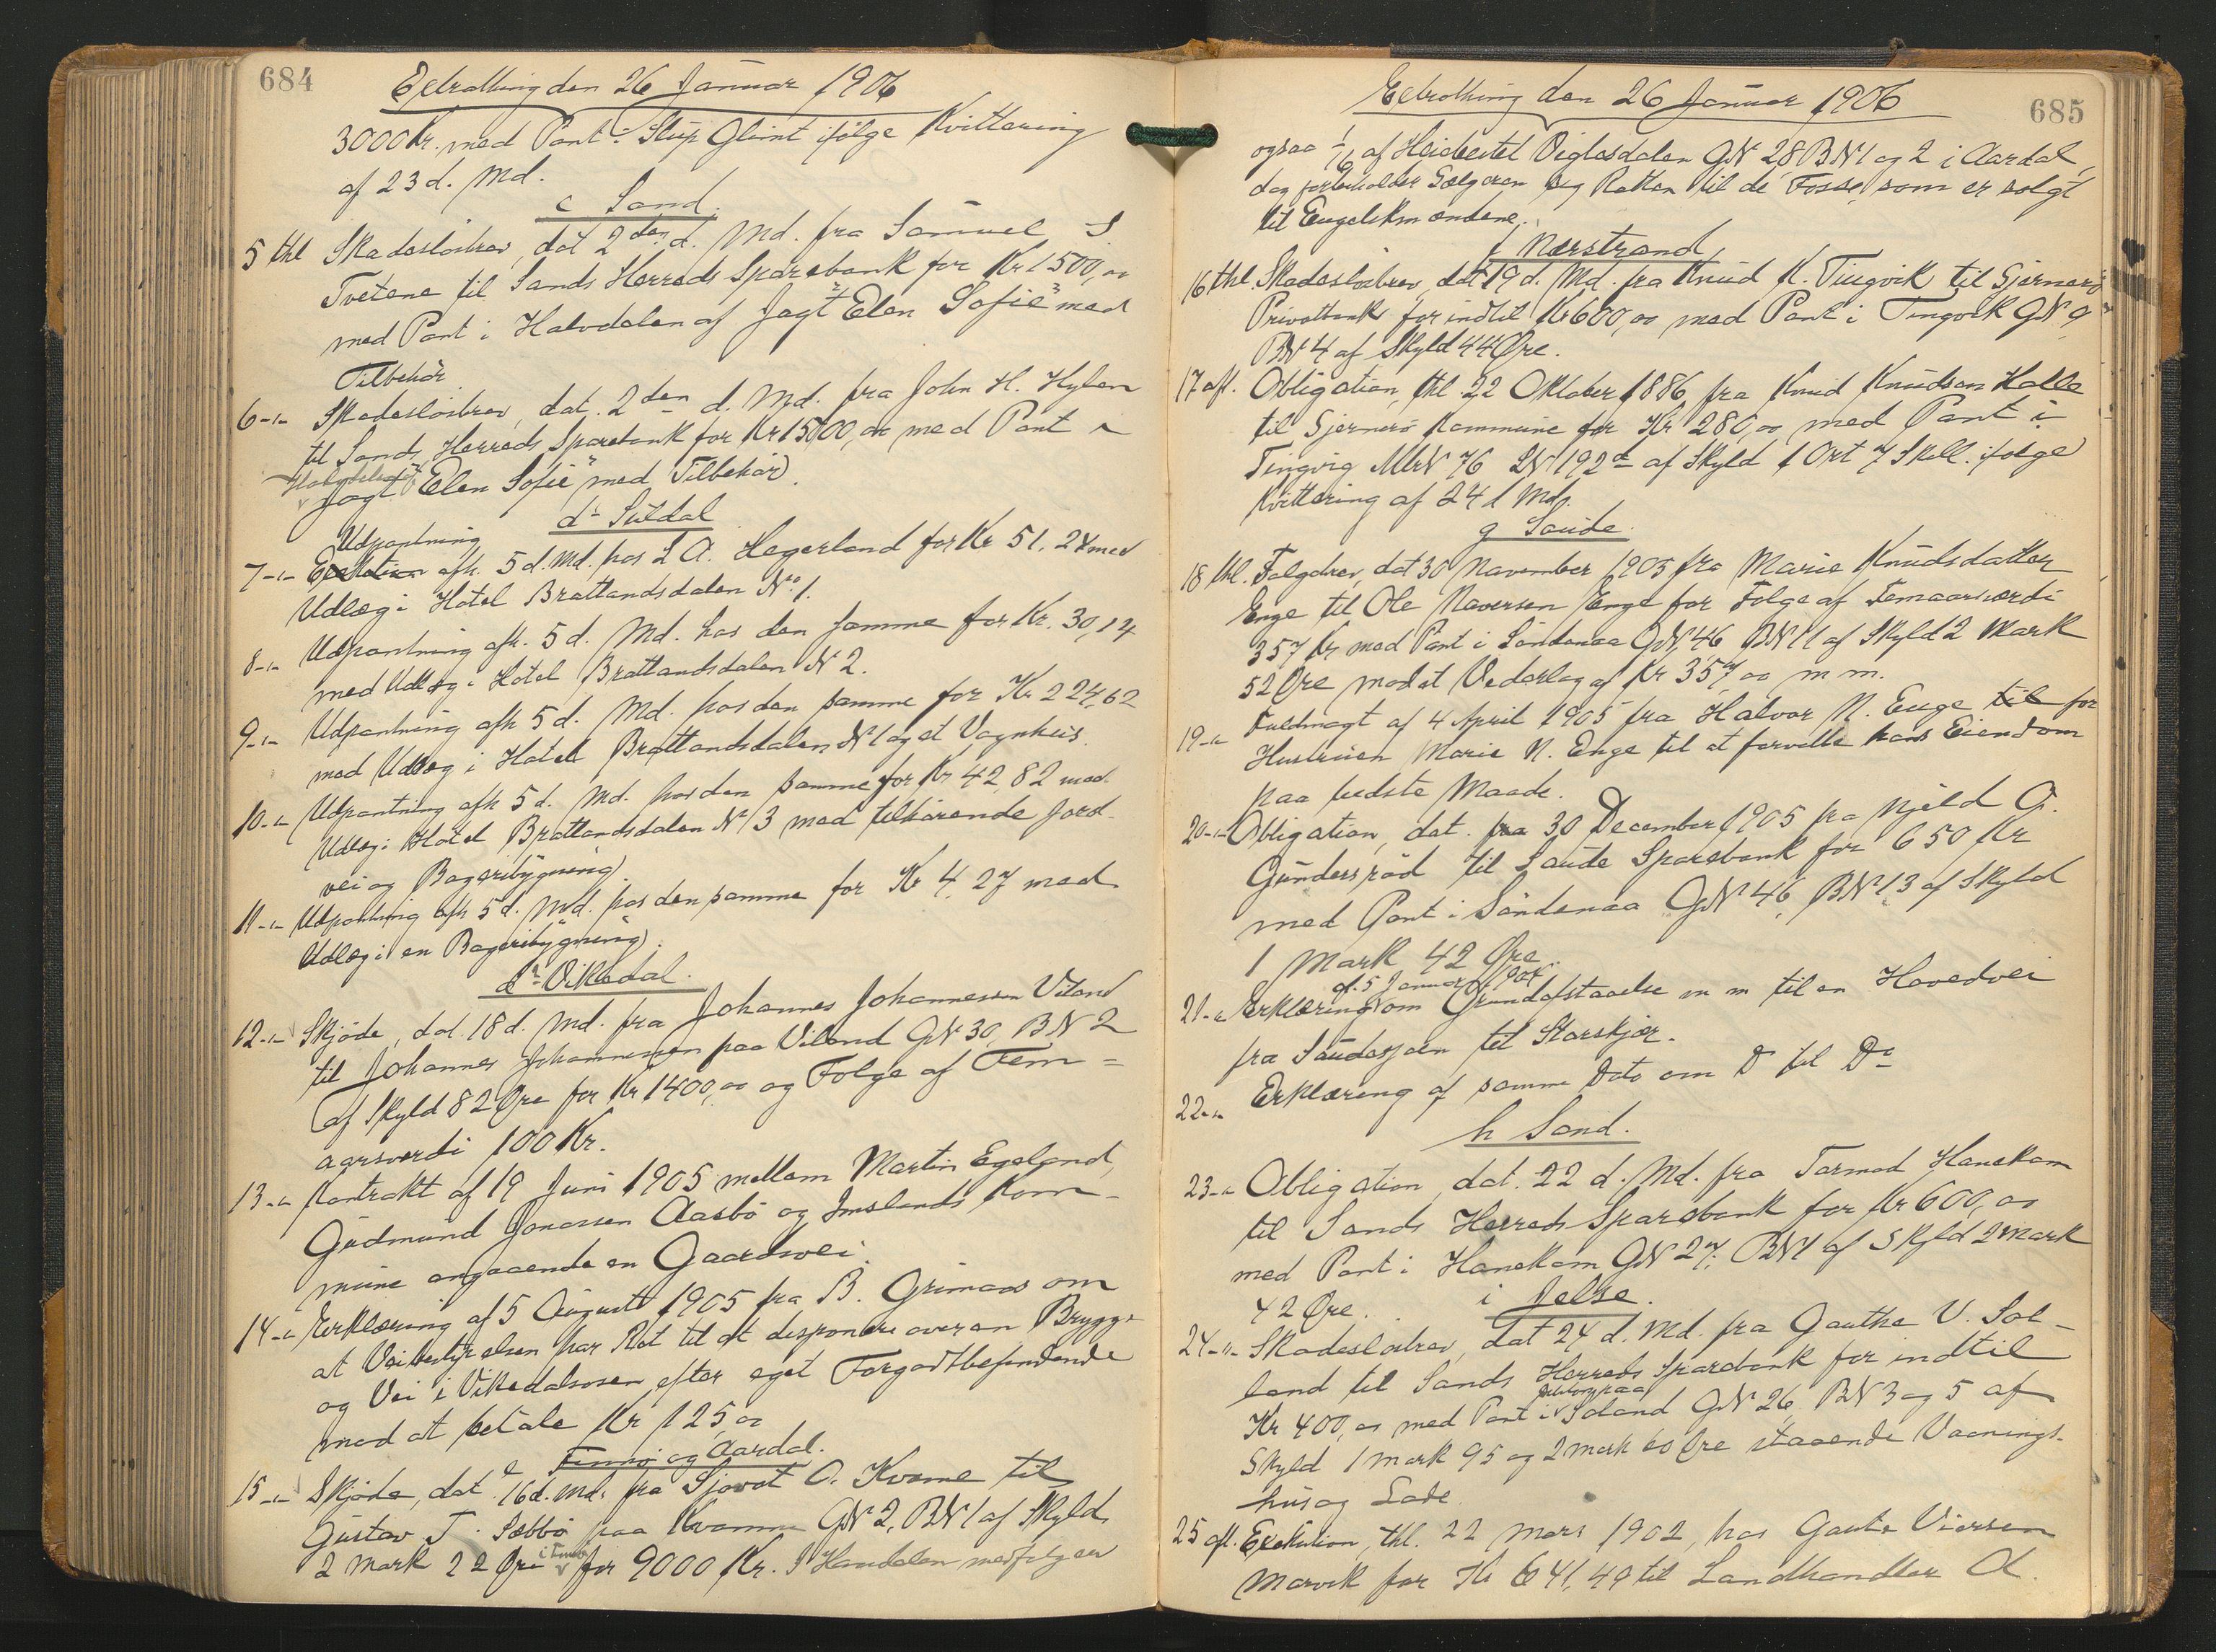 684
Extraktting den 26 Januar 1906
3000 Kr. med Pant i Slup Glimt ifølge Kvittering
af 23 d. Md.
c Sand.
5 thl Skadesløsbrev, dat 2den d. Md. fra Samuel S
Tvetene til Sands Herreds Sparebank for Kr 1500,00
med Pant i Halvdelen af Jagt "Elen Sofie" med
Tilbehør
6 -"- Skadesløsbrev, dat. 2den d. Md. fra John H. Hylen
til Sands Herreds Sparebank for Kr 1500,00 med Pant i
Halvdelen af
Jagt "Elen Sofie" med Tilbehør.
d Suldal
Udpantning
7 -"- afh. 5 d. Md. hos L A. Hegerland for Kr 51,24 med
Udlæg i Hotel Brattandsdalen No 1.
8 -"- Udpantning afh. 5 d. Md. hos den samme for Kr. 30,14
med Udlæg i Hotel Brattandsdalen N 2.
9 -"- Udpantning afh 5 d. Md. hos den samme for Kr 224,62
med Udlæg i Hotel Brattandsdalen N 1 og et Vognhus.
10 -"- Udpantning afh 5 d. Md. hos den samme for Kr 42,82 med
Udlæg i Hotel Brattandsdalen N 3 med tilhørende Jord-
vei og Bageribygning.
11 -"- Udpantning afh 5 d. Md. hos den samme for Kr 4,27 med
Udlæg i en Bageribygning.
d2 Vikedal.
12 -"- Skjøde, dat. 18 d. Md. fra Johannes Johannessen Viland
til Johannes Johannessen paa Viland GN 30, BN 2
af Skyld 82 Øre for Kr 1400,00 og Folge af Fem=
aarsverdi 100 Kr.
13 -"- Kontrakt af 19 Juni 1905 mellem Martin Egeland,
Gudmund Jonassen Aasbø og Imslands Kom-
mune angaaende en Gaardsvei.
14 -"- Erklæring af 5 August 1905 fra B. Grimaas om
at Veibestyrelsen har Ret til at disponere over en Brygge
og Vei i Vikedalsosen efter eget Forgodtbefindende
mod at betale Kr 125,00
e Finnø og Aardal.
15 -"- Skjøde, dat. 16 d. Md. fra Sjovat O. Kvame til
Gustav T. Sæbbø paa Kvamme GN 2, BN 1 af Skyld
2 Mark 22 Øre for 9000 Kr. I Handelen medfølger
685
Extraktting den 26 Januar 1906
ogsaa 1/16 af Heiebeitet Viglesdalen GN 28 BN 1 og 2 i Aardal,
dog forbeholder Sælgeren sig Retten til de Fosse, som er solgt
til Engelskmændene.
f Nærstrand
16 thl. Skadesløsbrev, dat 19 d. Md. fra Knud K. Tingvik til Sjernerø
Privatbank for indtil Kr 600,00 med Pant i Tingvik GN 9
BN 4 af Skyld 44 Øre.
17 afl. Obligation, thl 22 Oktober 1886, fra Knud Knudsen Halle
til Sjernerø Kommune for Kr 280,00 med Pant i
Tingvig MtrN 76 LN 192a af Skyld 1 Ort 7 Skill. ifølge
Kvittering af 24 d Md.
g Saude.
18 thl. Folgebrev, dat 30 November 1905 fra Marie Knudsdatter
Enge til Ole Naversen Enge for Folge af Femaarsverdi
357 Kr med Pant i Søndenaa GN 46 BN 11 af Skyld 2 Mark
52 Øre mod et Vederlag af Kr 357,00 m m.
19 -"- Fuldmagt af 4 April 1905 fra Halvor N. Enge til for
Hustruen Marie N. Enge til at forvalte hans Eiendom
paa bedste Maade.
20 -"- Obligation, dat. fra 30 December 1905 fra Njeld G.
Gundersrød til Saude Sparebank for 650 Kr
med Pant i Søndenaa GN 46, BN 13 af Skyld
1 Mark 42 Øre.
af 5 Januar 1904
21 -"- Erklæring om Grundafstaaelse m m til en Hovedvei
fra Saudasjøen til Storskjær.
22 -"- Erklæring af samme Dato om Do til Do
h Sand.
23 -"- Obligation, dat. 22 d. Md. fra Tormod Hanekam
til Sands Herreds Sparebank for Kr 600,00
med Pant i Hanekam GN 27, BN 1 af Skyld 2 Mark
42 Øre.
i Jelse.
24 -"- Skadesløsbrev, dat 24 d. Md. fra Gauthe V. Sol-
land til Sands Herreds Sparebank for indtil
Kr 400,00 med Pant i Soland GN 26, BN 3 og 5 af
Skyld 1 Mark 95 og 2 Mark 60 Øre staaende Vaanings-
hus og Lade.
25 afl. Exekution, thl. 22 Mars 1902, hos Gaute Viersen
Marvik for Kr 641,49 til Landhandler A.